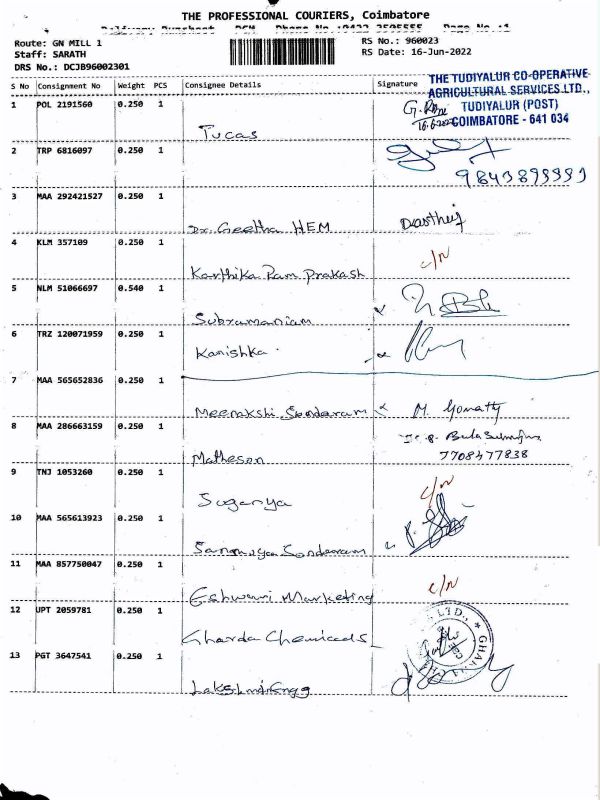 THE PROFESSIONAL COURIERS, Coimbatore
Route: GN MILL 1
RS No.: 960023
Staff: SARATH
RS Date: 16-Jun-2022
DRS No.: DCJB96002301
S No Consignment No Weight PCS Consignee Details Signature
THE TUDIYALUR CO-OPERATIVE
AGRICULTURAL SERVICES LTD.,
TUDIYALUR (POST)
COIMBATORE - 641 034
1 POL 2191560 0.250 1
Tucas
2 TRP 6816097 0.250 1
3 MAA 292421527 0.250 1
Dr. Geetha HEM
4 KLM 357109 0.250 1
c/n
Karthika Ram Prakash
5 NLM 51066697 0.540 1
Subramaniam
6 TRZ 120071959 0.250 1
Kanishka
7 MAA 565652836 0.250 1
Meenakshi Sundaram M. Gomathy
8 MAA 286663159 0.250 1
Matheson 7708477838
9 TNJ 1053260 0.250 1
c/n
Suganya
10 MAA 565613923 0.250 1
Sundaram
11 MAA 857750047 0.250 1
c/n
Eshwari Marketing
12 UPT 2059781 0.250 1
Gharda Chemicals
13 PGT 3647541 0.250 1
Lakshmi Engg